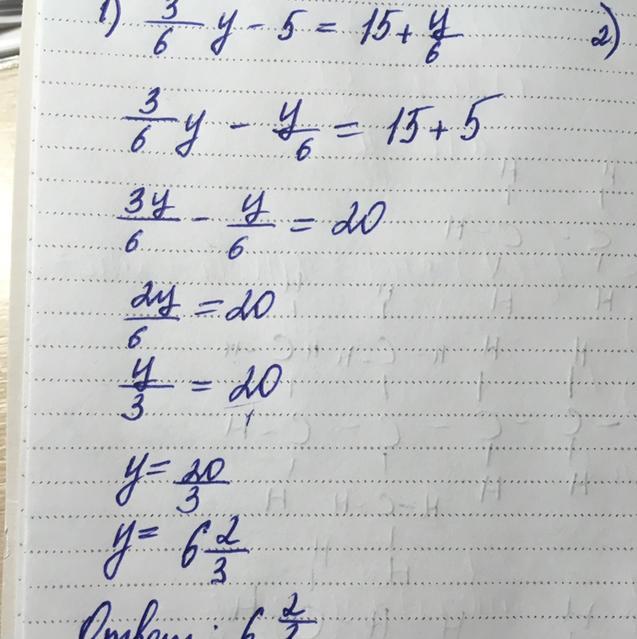 1) 3/6 y - 5 = 15 + y/6 2)
3/6 y - y/6 = 15 + 5
3y/6 - y/6 = 20
2y/6 = 20
y/3 = 20/1
y = 20/3
y = 6 2/3
Ответ: 6 2/3